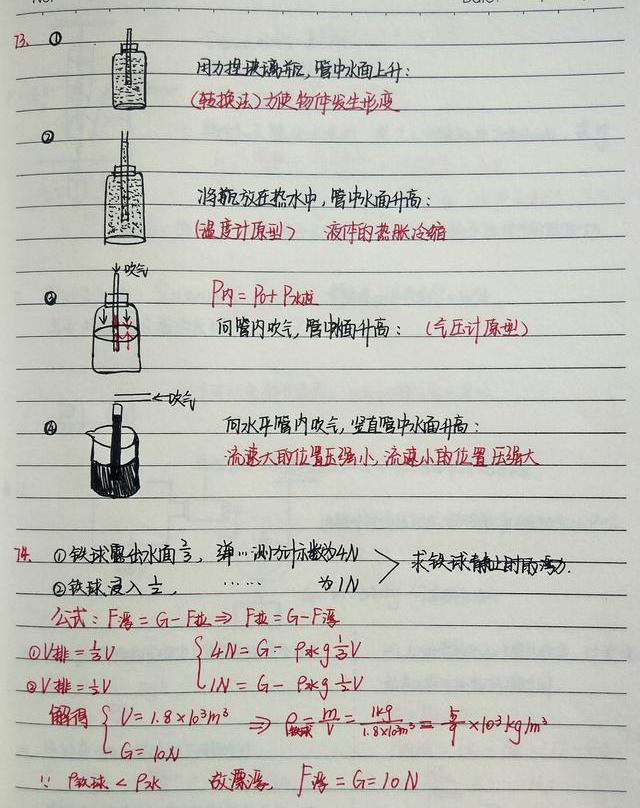 73. ① 用力捏玻璃瓶,管中水面上升:
(转换法)力使物体发生形变
② 将瓶放在热水中,管中水面升高:
(温度计原型) 液体的热胀冷缩
↓吹气
P内=P0+P水柱
③ 向管内吹气,管中水面升高: (气压计原型)
←吹气
④ 向水平管内吹气,竖直管中水面升高:
流速大的位置压强小,流速小的位置压强大
74. ①铁球露出水面⅔, 弹…测力计示数为4N
②铁球浸入½, …… 为1N
> 求铁球静止时的浮力.
公式:F浮=G-F拉⇒ F拉=G-F浮
①V排=⅓V { 4N=G-ρ水g⅓V
②V排=½V 1N=G-ρ水g½V
解得 { V=1.8×10³m³ ⇒ ρ铁球=m/V=1kg/1.8×10³m³=5/9×10³kg/m³
G=10N
∵ ρ铁球<ρ水 故漂浮, F浮=G=10N